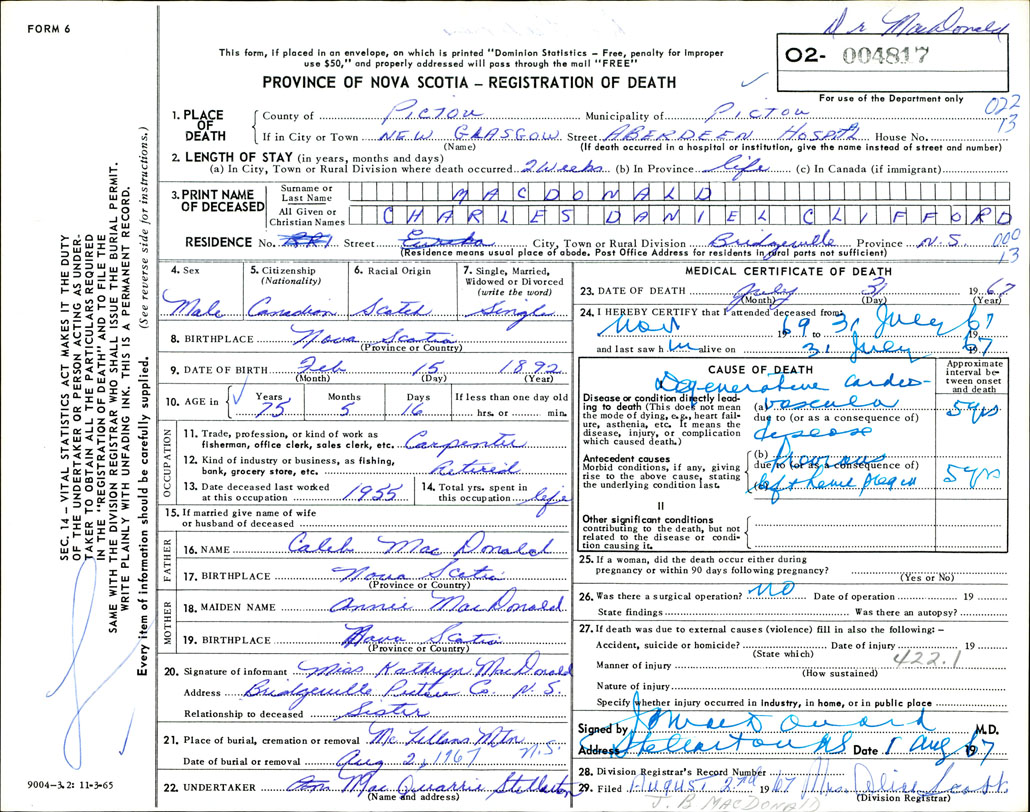 FORM 6
Dr MacDonald
This form, if placed in an envelope, on which is printed "Dominion Statistics – Free, penalty for improper
use $50," and properly addressed will pass through the mail "FREE"
PROVINCE OF NOVA SCOTIA – REGISTRATION OF DEATH
O2- 004817
For use of the Department only
022
13
1. PLACE OF DEATH
County of PICTOU Municipality of PICTOU
If in City or Town NEW GLASGOW Street ABERDEEN HOSPTL House No.
(Name) (If death occurred in a hospital or institution, give the name instead of street and number)
2. LENGTH OF STAY (in years, months and days)
(a) In City, Town or Rural Division where death occurred 2 Weeks (b) In Province life (c) In Canada (if immigrant)
3. PRINT NAME OF DECEASED
Surname or Last Name MACDONALD
All Given or Christian Names CHARLES DANIEL CLIFFORD
RESIDENCE No. RR1 Street Eureka City, Town or Rural Division Bridgeville Province N.S. 000
13
(Residence means usual place of abode. Post Office Address for residents in rural parts not sufficient)
4. Sex Male
5. Citizenship (Nationality) Canadian
6. Racial Origin Scotch
7. Single, Married, Widowed or Divorced (write the word) Single
8. BIRTHPLACE Nova Scotia
(Province or Country)
9. DATE OF BIRTH Feb 15 1892
(Month) (Day) (Year)
10. AGE in Years Months Days If less than one day old
75 5 16 hrs. or min.
OCCUPATION
11. Trade, profession, or kind of work as
fisherman, office clerk, sales clerk, etc. Carpenter
12. Kind of industry or business, as fishing,
bank, grocery store, etc. Retired
13. Date deceased last worked at this occupation 1955
14. Total yrs. spent in this occupation life
15. If married give name of wife
or husband of deceased
FATHER
16. NAME Caleb MacDonald
17. BIRTHPLACE Nova Scotia
(Province or Country)
MOTHER
18. MAIDEN NAME Annie MacDonald
19. BIRTHPLACE Nova Scotia
(Province or Country)
20. Signature of informant Miss Kathryn MacDonald
Address Bridgeville Pictou Co. N.S.
Relationship to deceased Sister
21. Place of burial, cremation or removal McLellans Mtn N.S.
Date of burial or removal Aug 2, 1967
22. UNDERTAKER MacQuarrie Stellarton
(Name and address)
MEDICAL CERTIFICATE OF DEATH
23. DATE OF DEATH July 31 1967
(Month) (Day) (Year)
24. I HEREBY CERTIFY that I attended deceased from
19 69 to 31 July 19 67
and last saw h im alive on 31 July 19 67
CAUSE OF DEATH
Approximate interval between onset and death
Degenerative cardio-
Disease or condition directly leading to death (This does not mean the mode of dying, e.g., heart failure, asthenia, etc. It means the disease, injury, or complication which caused death.)
(a) vascula 5 yrs
due to (or as a consequence of)
disease
Antecedent causes
Morbid conditions, if any, giving rise to the above cause, stating the underlying condition last.
(b)
due to (or as a consequence of)
(c) 5 yrs
II
Other significant conditions
contributing to the death, but not related to the disease or condition causing it.
25. If a woman, did the death occur either during
pregnancy or within 90 days following pregnancy?
(Yes or No)
26. Was there a surgical operation? NO Date of operation 19
State findings Was there an autopsy?
27. If death was due to external causes (violence) fill in also the following: –
Accident, suicide or homicide? Date of injury 19
(State which) 422.1
Manner of injury
(How sustained)
Nature of injury
Specify whether injury occurred in Industry, in home, or in public place
Signed by J MacDonald M.D.
Address Stellarton NS Date 1 Aug 19 67
28. Division Registrar's Record Number
29. Filed August 2nd 1967 Mrs. Alice Scott
(Division Registrar)
J. B MACDONALD
SEC. 14 – VITAL STATISTICS ACT MAKES IT THE DUTY
OF THE UNDERTAKER OR PERSON ACTING AS UNDER-
TAKER TO OBTAIN ALL THE PARTICULARS REQUIRED
IN THE "REGISTRATION OF DEATH" AND TO FILE THE
SAME WITH THE DIVISION REGISTRAR WHO SHALL ISSUE THE BURIAL PERMIT.
WRITE PLAINLY WITH UNFADING INK. THIS IS A PERMANENT RECORD.
Every item of information should be carefully supplied. (See reverse side for instructions.)
9004–3.2: 11-3-65